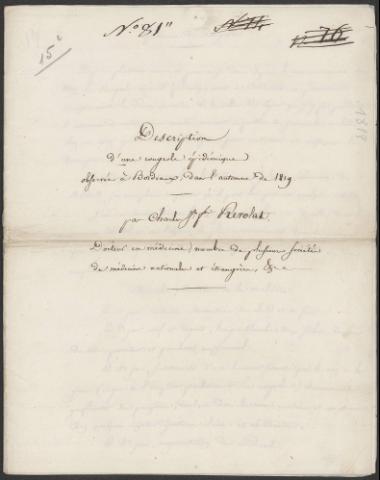 N.º 81"
N. 11.
n. 76
15.e
1819
Description
d'une rougeole épidémique
observée à Bordeaux, dans l'automne de 1819
par Charles Jph
Docteur en médecine, membre de plusieurs sociétés
de médecine nationales et étrangères, &c